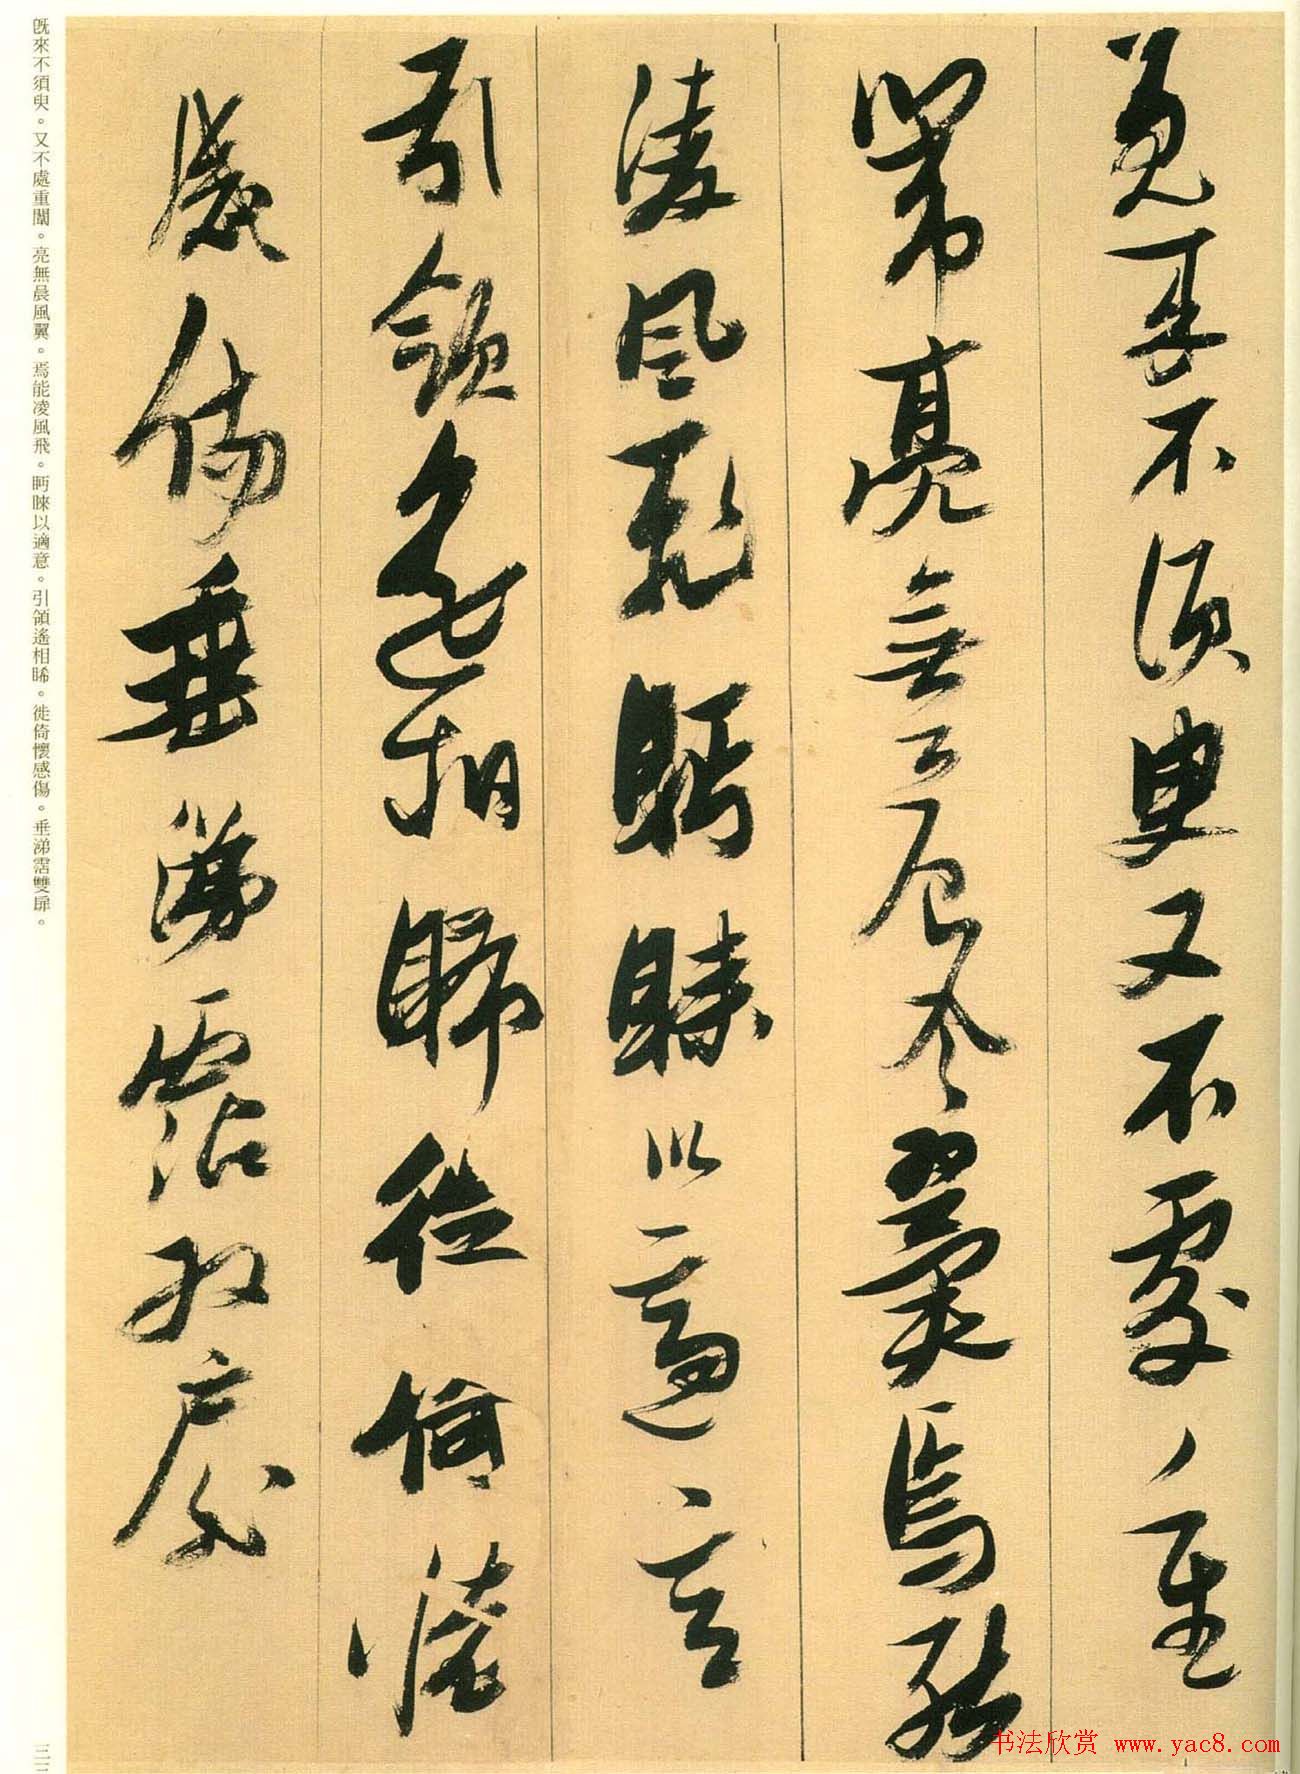 既来不須臾又不處重
闈亮無晨風翼焉能
凌風飛眄睞以適意
引領遙相睎徙倚懷
感傷垂涕霑雙扉
既來不須臾。又不處重闈。亮無晨風翼。焉能凌風飛。眄睞以適意。引領遙相睎。徙倚懷感傷。垂涕霑雙扉。
书法欣赏 www.yac8.com